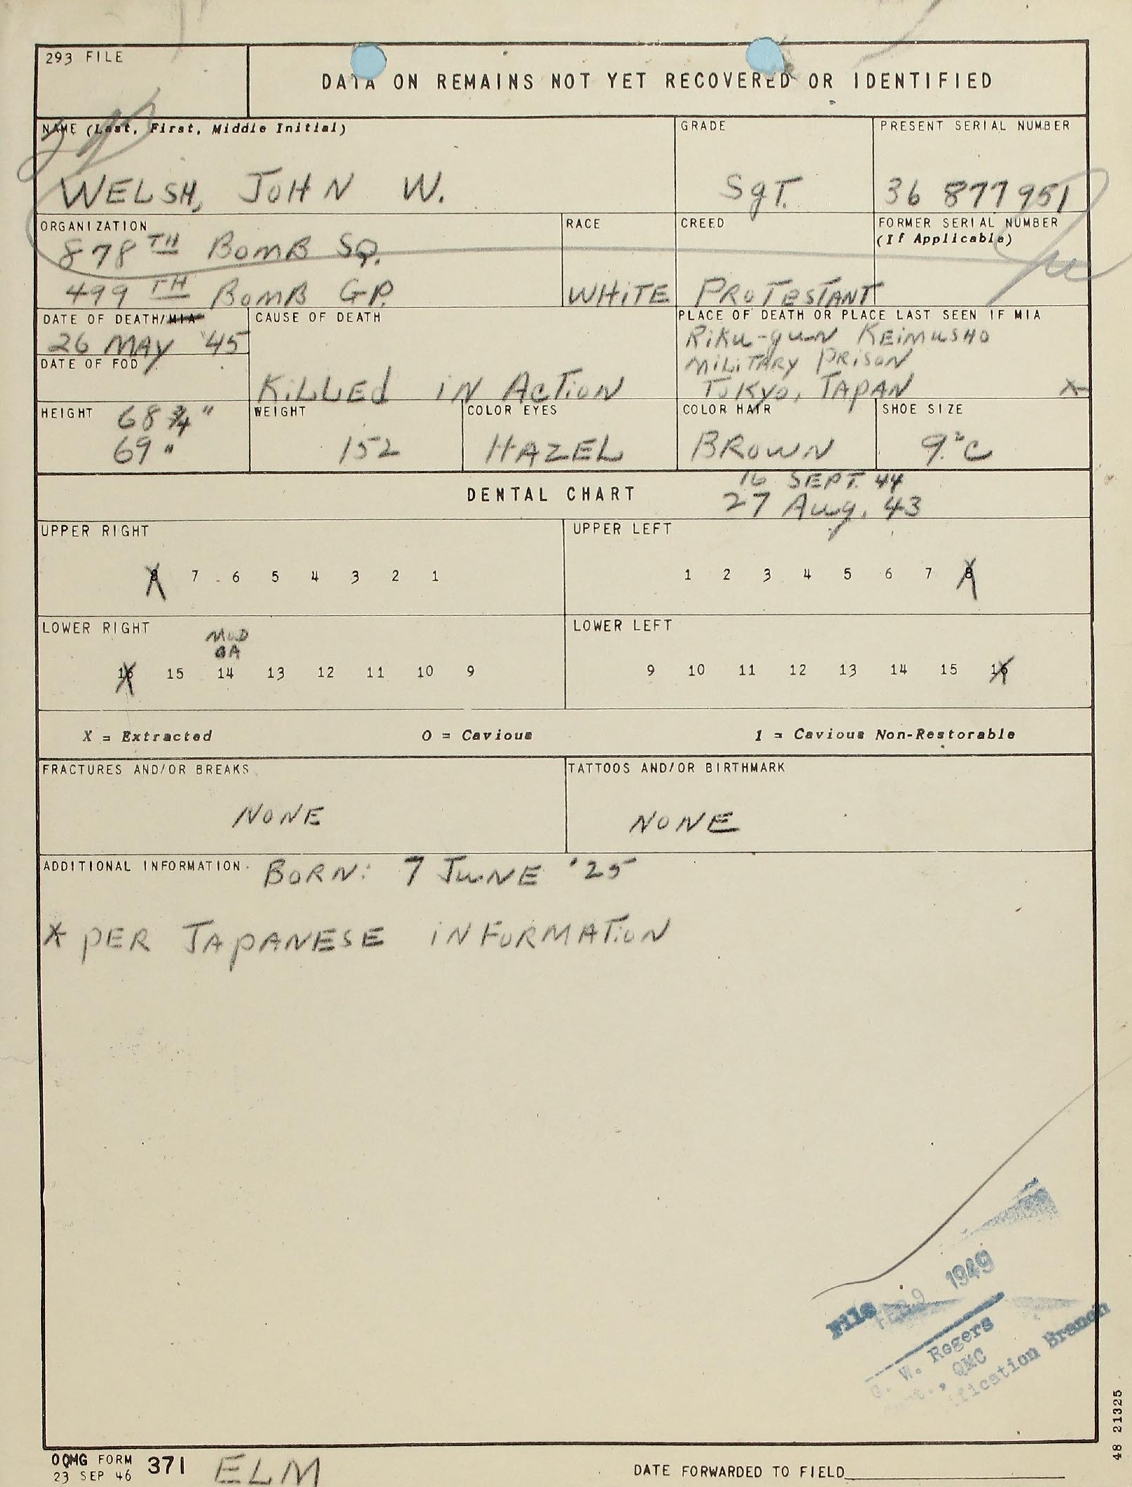 293 FILE
DATA ON REMAINS NOT YET RECOVERED OR IDENTIFIED
NAME (Last, First, Middle Initial)
WELSH, JOHN W.
GRADE
SgT.
PRESENT SERIAL NUMBER
36 877951
ORGANIZATION
878 TH BOMB SQ.
499 TH BOMB GP.
RACE
WHITE
CREED
PROTESTANT
FORMER SERIAL NUMBER
(If Applicable)
DATE OF DEATH/MIA
26 MAY '45
DATE OF FOD
CAUSE OF DEATH
KILLED IN ACTION
PLACE OF DEATH OR PLACE LAST SEEN IF MIA
RiKu-guN KEiMUSHO
MILITARY PRISON
TOKYO, JAPAN X
HEIGHT
68 3/4"
69"
WEIGHT
152
COLOR EYES
HAZEL
COLOR HAIR
BROWN
SHOE SIZE
9 2 C
DENTAL CHART
16 SEPT. 44
27 Aug. 43
UPPER RIGHT
8 7 6 5 4 3 2 1
UPPER LEFT
1 2 3 4 5 6 7 8
LOWER RIGHT
MOD
16 15 14 13 12 11 10 9
LOWER LEFT
9 10 11 12 13 14 15 16
X = Extracted
O = Cavious
1 = Cavious Non-Restorable
FRACTURES AND/OR BREAKS
NONE
TATTOOS AND/OR BIRTHMARK
NONE
ADDITIONAL INFORMATION
BORN: 7 JUNE '25
X PER JAPANESE INFORMATION
File FEB 9 1949
W. Rogers
QMC
Branch
48 21325
OQMG FORM 371
23 SEP 46
ELM
DATE FORWARDED TO FIELD